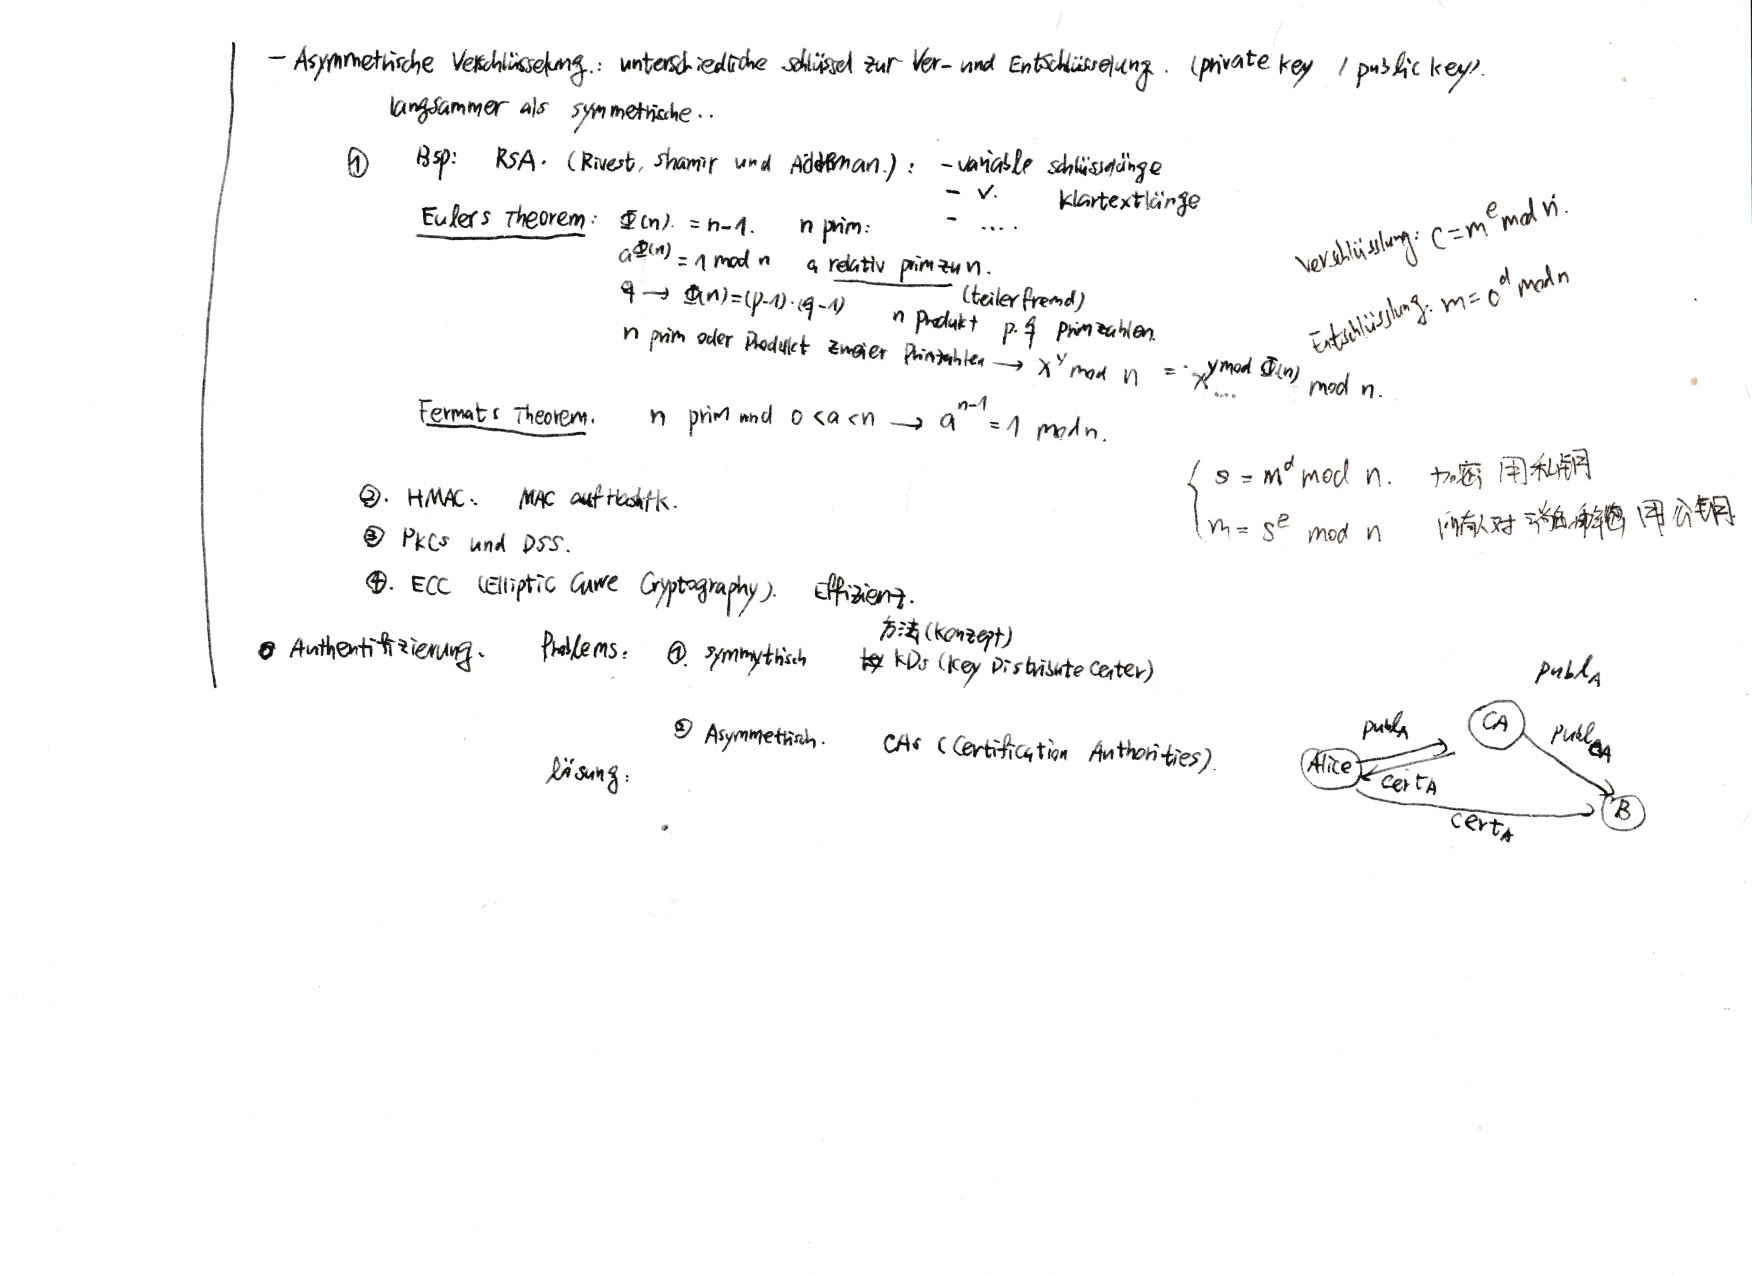 - Asymmetrische Verschlüsselung.: unterschiedliche schlüssel zur Ver- und Entschlüsselung. (private key / public key).
langsammer als symmetrische..
① Bsp: RSA. (Rivest, Shamir und Addleman.): - variable schlüssellänge
- v. klartextlänge
- ....
Eulers Theorem: Φ(n). = n-1. n prim:
a^Φ(n) = 1 mod n a relativ prim zu n.
(teilerfremd)
q → Φ(n)=(p-1)·(q-1) n Produkt p. q primzahlen.
n prim oder Produkt zweier Primzahlen → x^y mod n = x^(y mod Φ(n)) mod n.
....
Verschlüsslung: c = m^e mod n.
Entschlüsslung: m = c^d mod n
Fermats Theorem. n prim und 0 < a < n → a^(n-1) = 1 mod n.
s = m^d mod n. 加密 用私钥
m = s^e mod n 所有人对 解密 用公钥
②. HMAC: MAC auf Hashfk.
③ PKCs und DSS.
④. ECC (Elliptic Curve Cryptography). Effizienz.
Authentifizierung. Problems: ①. symmythisch 方法(konzept)
KDs (Key Distribute Center)
② Asymmettisch. CAs (Certification Authorities).
lösung:
publ_A
CA
publ_A
publ_CA
Alice
cert_A
B
cert_A